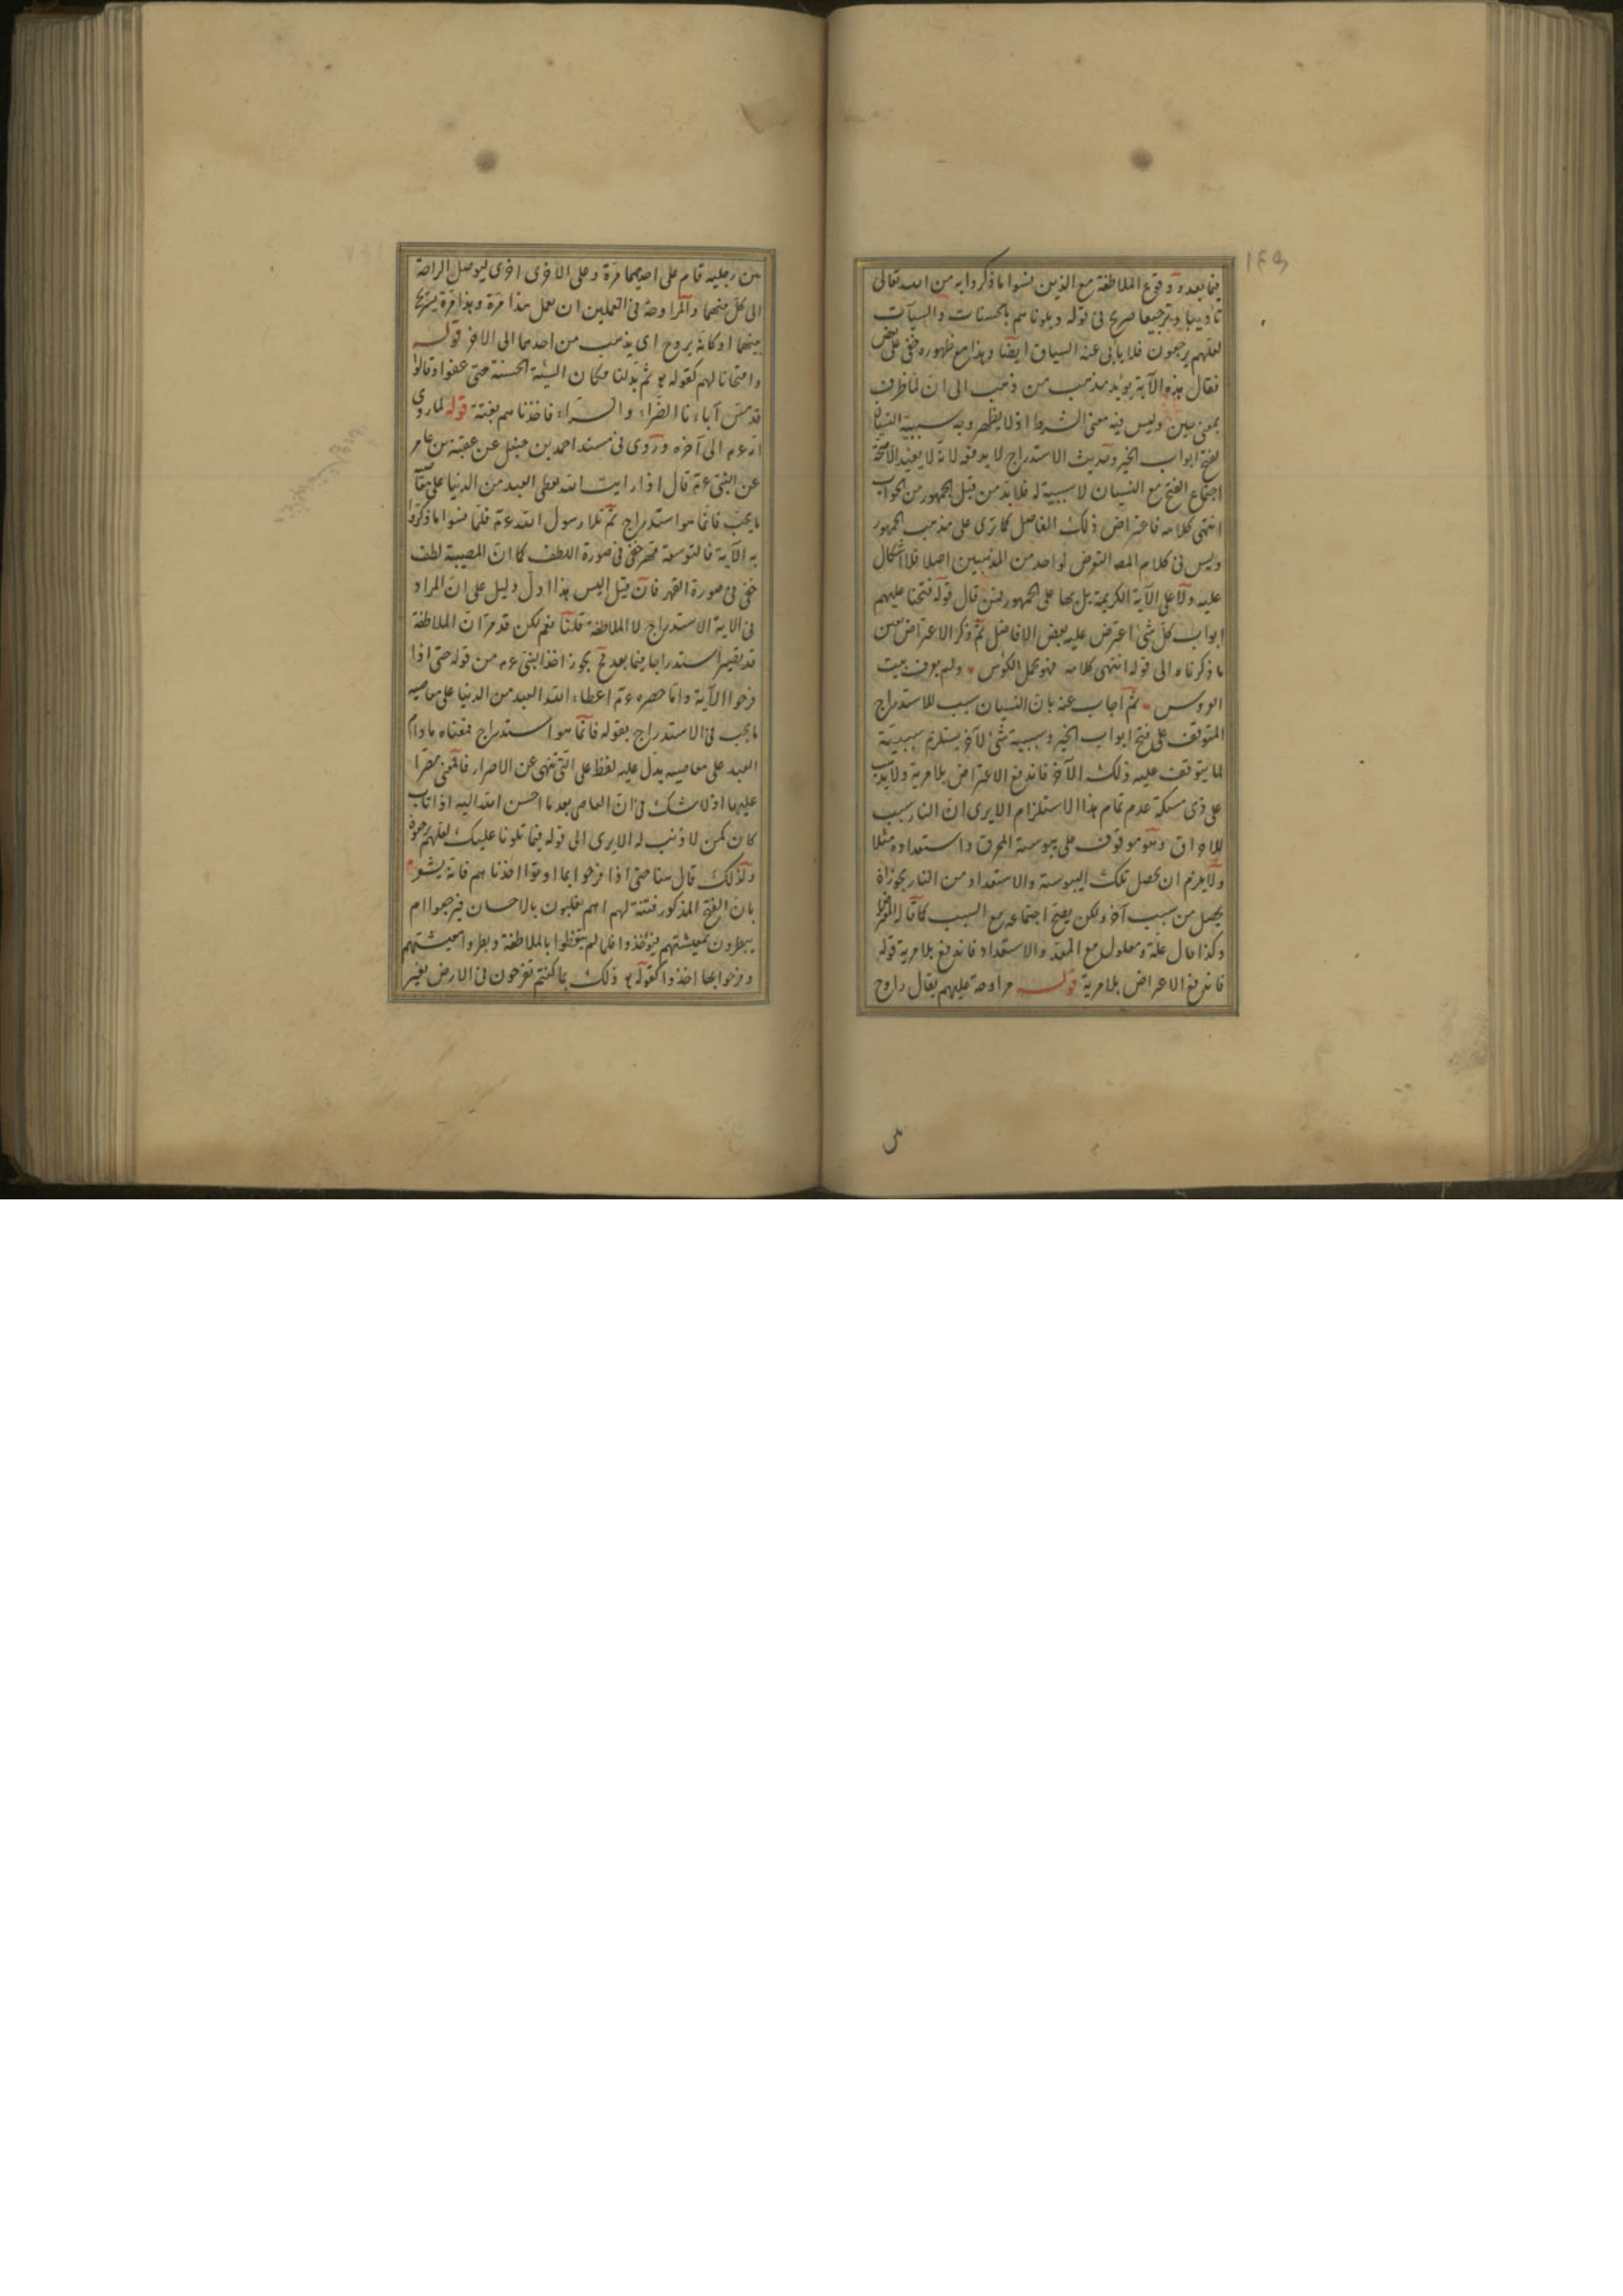 ١٤٥
فيما بعده ووقوع الملاطفة مع الذين نسوا ما ذكروا به من الله تعالى
تأديبا وترجيعا صريح فى قوله وبلوناهم بالحسنات والسيآت
لعلهم يرجعون فلا يأبى عنه السياق ايضا وهذا مع ظهوره خفى على بعض
فقال هذه الآية يؤيد مذهب من ذهب الى ان لما ظرف
بمعنى حين وليس فيه معنى الشرط اذ لا يظهر وجه سببية النسيان
لفتح ابواب الخير وحديث الاستدراج لا يدفعه لانه لا يفيد الا صحة
اجتماع الفتح مع النسيان لا سببية له فلا بد من قبل الجمهور من الجواب
انتهى كلامه فاعتراض ذلك الفاضل كما ترى على مذهب الجمهور
وليس فى كلام المص التعرض لواحد من المذهبين اصلا فلا اشكال
عليه ولا على الآية الكريمة بل بها على الجمهور فمن قال قوله فتحنا عليهم
ابواب كل شئ اعترض عليه بعض الافاضل ثم ذكر الاعتراض بعين
ما ذكرناه الى قوله انتهى كلامه فهو محل الكؤس ولم يعرف بيت
العروس ثم اجاب عنه بان النسيان سبب للاستدراج
المتوقف على فتح ابواب الخير وسببية شئ لآخر يستلزم سببيته
لما يتوقف عليه ذلك الآخر فاندفع الاعتراض بلا مرية ولا يذهب
على ذى مسكة عدم تمام هذا الاستلزام الا يرى ان النار سبب
للاحراق وهو موقوف على يبوسة المحرق واستعداده مثلا
ولا يلزم ان يحصل تلك اليبوسة والاستعداد من النار بجواز ان
يحصل من سبب آخر ولكن يصح اجتماعه مع السبب كما قاله المعترض
وكذا حال علة ومعلول مع المعد والاستعداد فاندفع بلا مرية قوله
فاندفع الاعتراض بلا مرية قوله مراوحة عليهم يقال راوح
بين رجليه قام على احديهما مرة وعلى الاخرى اخرى ليوصل الراحة
الى كل منهما والمراوحة فى العملين ان يعمل هذا مرة وهذا مرة يستريح
بينهما او كأنه يروح اى يذهب من احدهما الى الآخر قوله
وامتحانا لهم كقوله تع ثم بدلنا مكان السيئة الحسنة حتى عفوا وقالوا
قد مس آباءنا الضراء والسراء فاخذناهم بغتة قوله لما روى
انه عم الى آخره وروى فى مسند احمد بن حنبل عن عقبة بن عامر
عن النبى عم قال اذا رايت الله يعطى العبد من الدنيا على معاصيه
ما يحب فانما هو استدراج ثم تلا رسول الله عم فلما نسوا ما ذكروا
به الآية فالتوسعة قهر خفى فى صورة اللطف كما ان المصيبة لطف
خفى فى صورة القهر فان قيل اليس هذا ادل دليل على ان المراد
فى الآية الاستدراج لا الملاطفة قلنا نعم لكن قد مر ان الملاطفة
قد يصير استدراجا فيما بعد فح يجوز اخذ النبى عم من قوله حتى اذا
فرحوا الآية وانما حصره عم اعطاء الله العبد من الدنيا على معاصيه
ما يحب فى الاستدراج بقوله فانما هو استدراج فمعناه ما دام
العبد على معاصيه يدل عليه لفظ على التى تنهى عن الاصرار فالمعنى مصرا
عليها اذ لا شك فى ان العاصى بعد ما احسن الله اليه اذا تاب
كان كمن لا ذنب له الا يرى الى قوله فيما تلونا عليك لعلهم يرجعون
ولذلك قال هنا حتى اذا فرحوا بما اوتوا اخذناهم فانه يشعر
بان الفتح المذكور فتنة لهم اهم يغلبون بالاحسان فيرجعوا ام
يبطرون بمعيشتهم فيؤخذوا فلما لم يتعظوا بالملاطفة وبطروا معيشتهم
وفرحوا بها اخذوا كقوله تع ذلك بما كنتم تفرحون فى الارض بغير